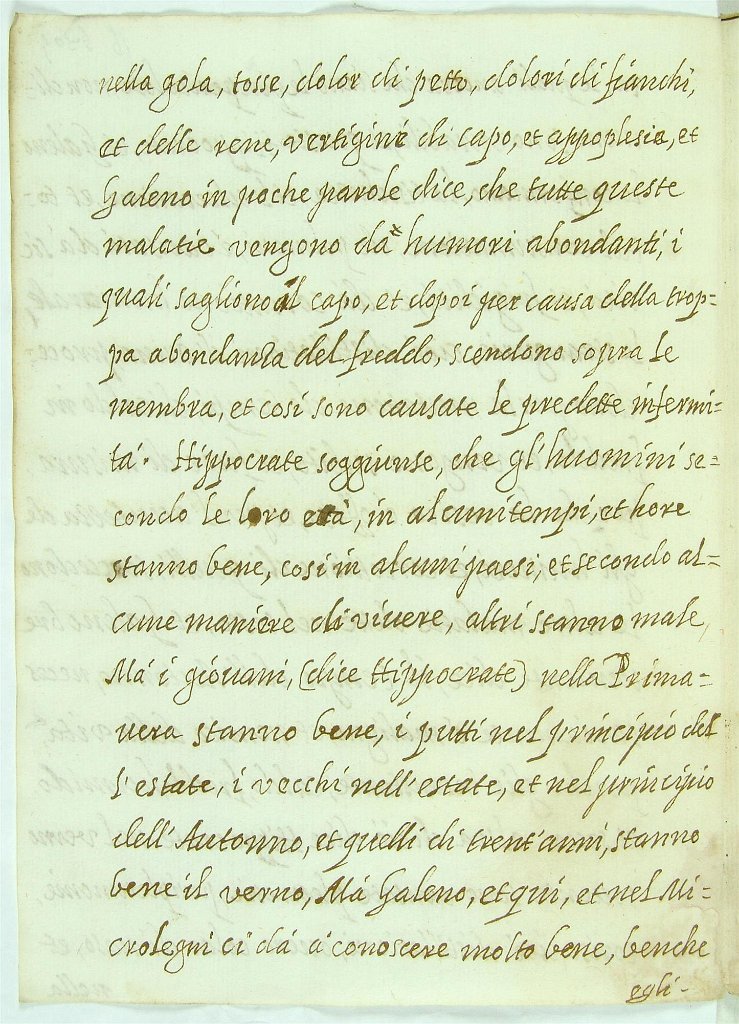 nella gola, tosse, dolor di petto, dolori di fianchi,
et delle rene, vertigine di capo, et appoplesia, et
Galeno in poche parole dice, che tutte queste
malatie vengono da humori abondanti, i
quali sagliono al capo, et dopoi per causa della trop=
pa abondanza del freddo, scendono sopra le
membra, et cosi sono causate le predette infermi=
tà. Hippocrate soggiunse, che gl'huomini se=
condo le loro età, in alcuni tempi, et hore
stanno bene, cosi in alcuni paesi, et secondo al=
cune maniere di vivere, altri stanno male,
Mà i giovani, (dice Hippocrate) nella Prima=
vera stanno bene, i putti nel principio del
l'estate, i vecchi nell'estate, et nel principio
dell'Autonno, et quelli di trent'anni, stanno
bene il verno, Mà Galeno, et qui, et nel Mi=
crolegni ci dà à conoscere molto bene, benche
egli-